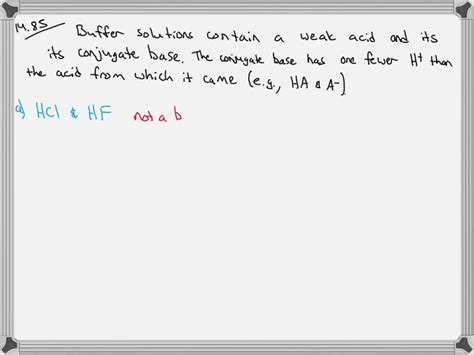 14.85 Buffer solutions contain a weak acid and its
its conjugate base. The conjugate base has one fewer H+ than
the acid from which it came (e.g., HA & A-)
a) HCl & HF not a b